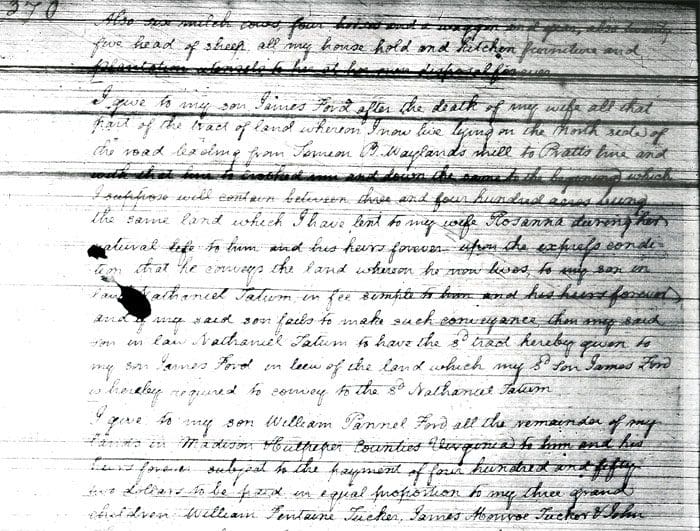 370
Also six milch cows, four horses and a waggon and gear, also twenty
five head of sheep all my house hold and kitchen furniture and
plantation utensils to be at her own disposal forever
I give to my son James Ford after the death of my wife all that
part of the tract of land whereon I now live lying on the North side of
the road leading from Simeon B. Waylands mill to Pratts line and
with that line to crooked run and down the same to the beginning which
I suppose will contain between three and four hundred acres being
the same land which I have lent to my wife Rosanna during her
natural life to him and his heirs forever upon the express condi-
tion that he conveys the land whereon he now lives, to my son in
law Nathaniel Tatum in fee simple to him and his heirs forever
and if my said son fails to make such conveyance then my said
son in law Nathaniel Tatum to have the sd tract hereby given to
my son James Ford in lieu of the land which my sd son James Ford
is hereby required to convey to the sd Nathaniel Tatum
I give to my son William Pannel Ford all the remainder of my
lands in Madison Culpeper Counties Virginia to him and his
heirs forever subject to the payment of four hundred and fifty
two dollars to be paid in equal proportion to my three grand
children William Fontaine Tucker, James Monroe Tucker & John